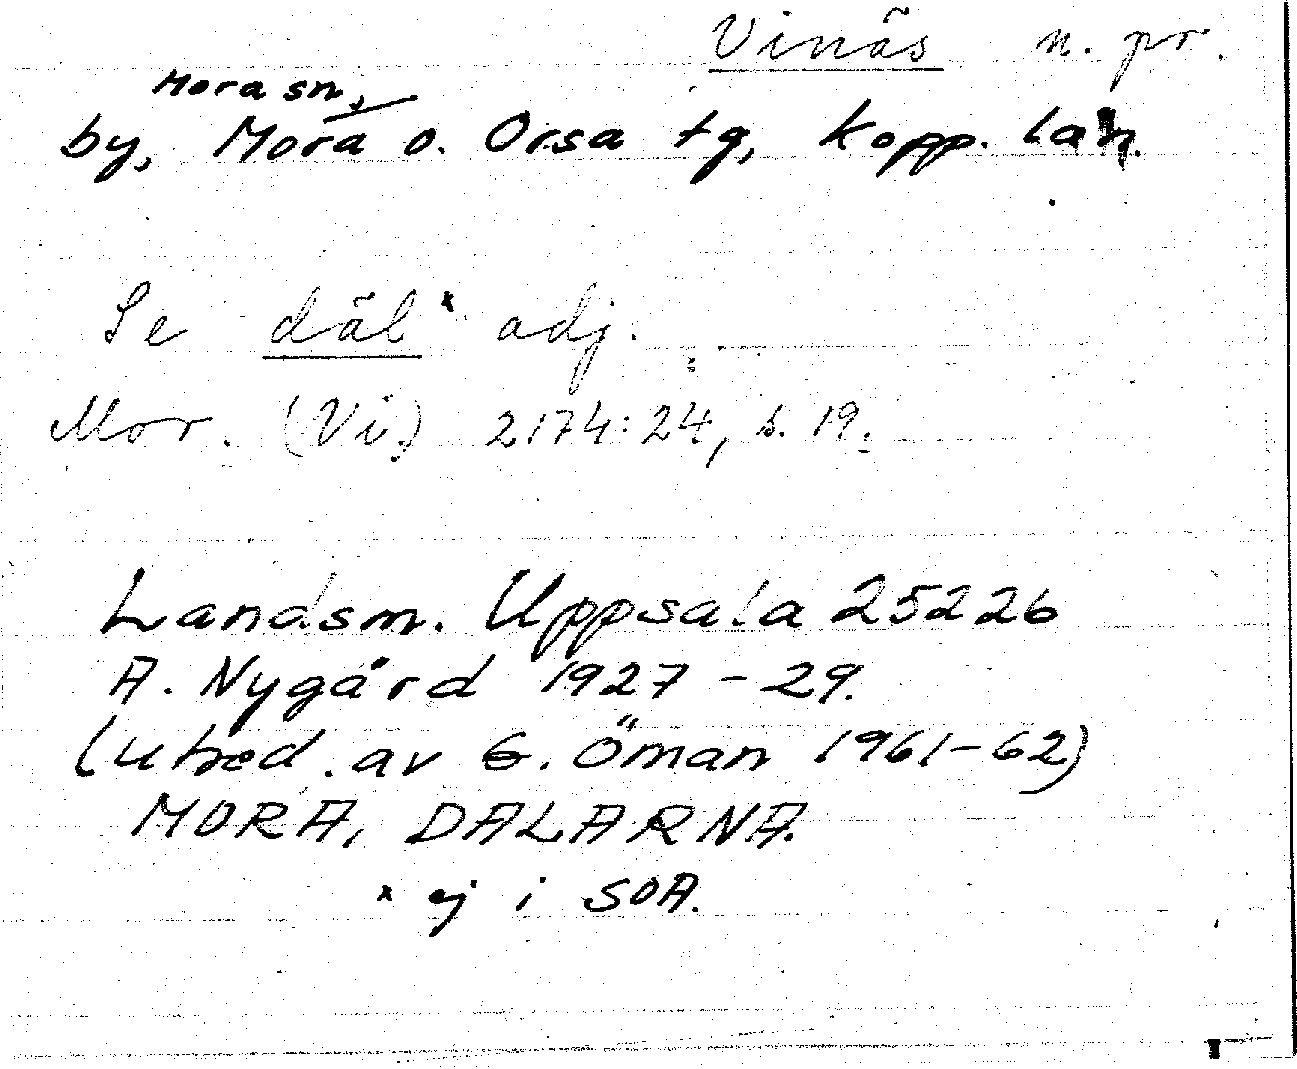 Vinäs n. pr.
Mora sn,
by, Mora o. Orsa tg, Kopp. län.
Se däl x adj.
Mor. (Vi.) 2174:24, s. 19.
Landsm. Uppsala 25226
A. Nygård 1927-29.
(utred. av G. Öman 1961-62)
MORA, DALARNA.
x ej i SOA.